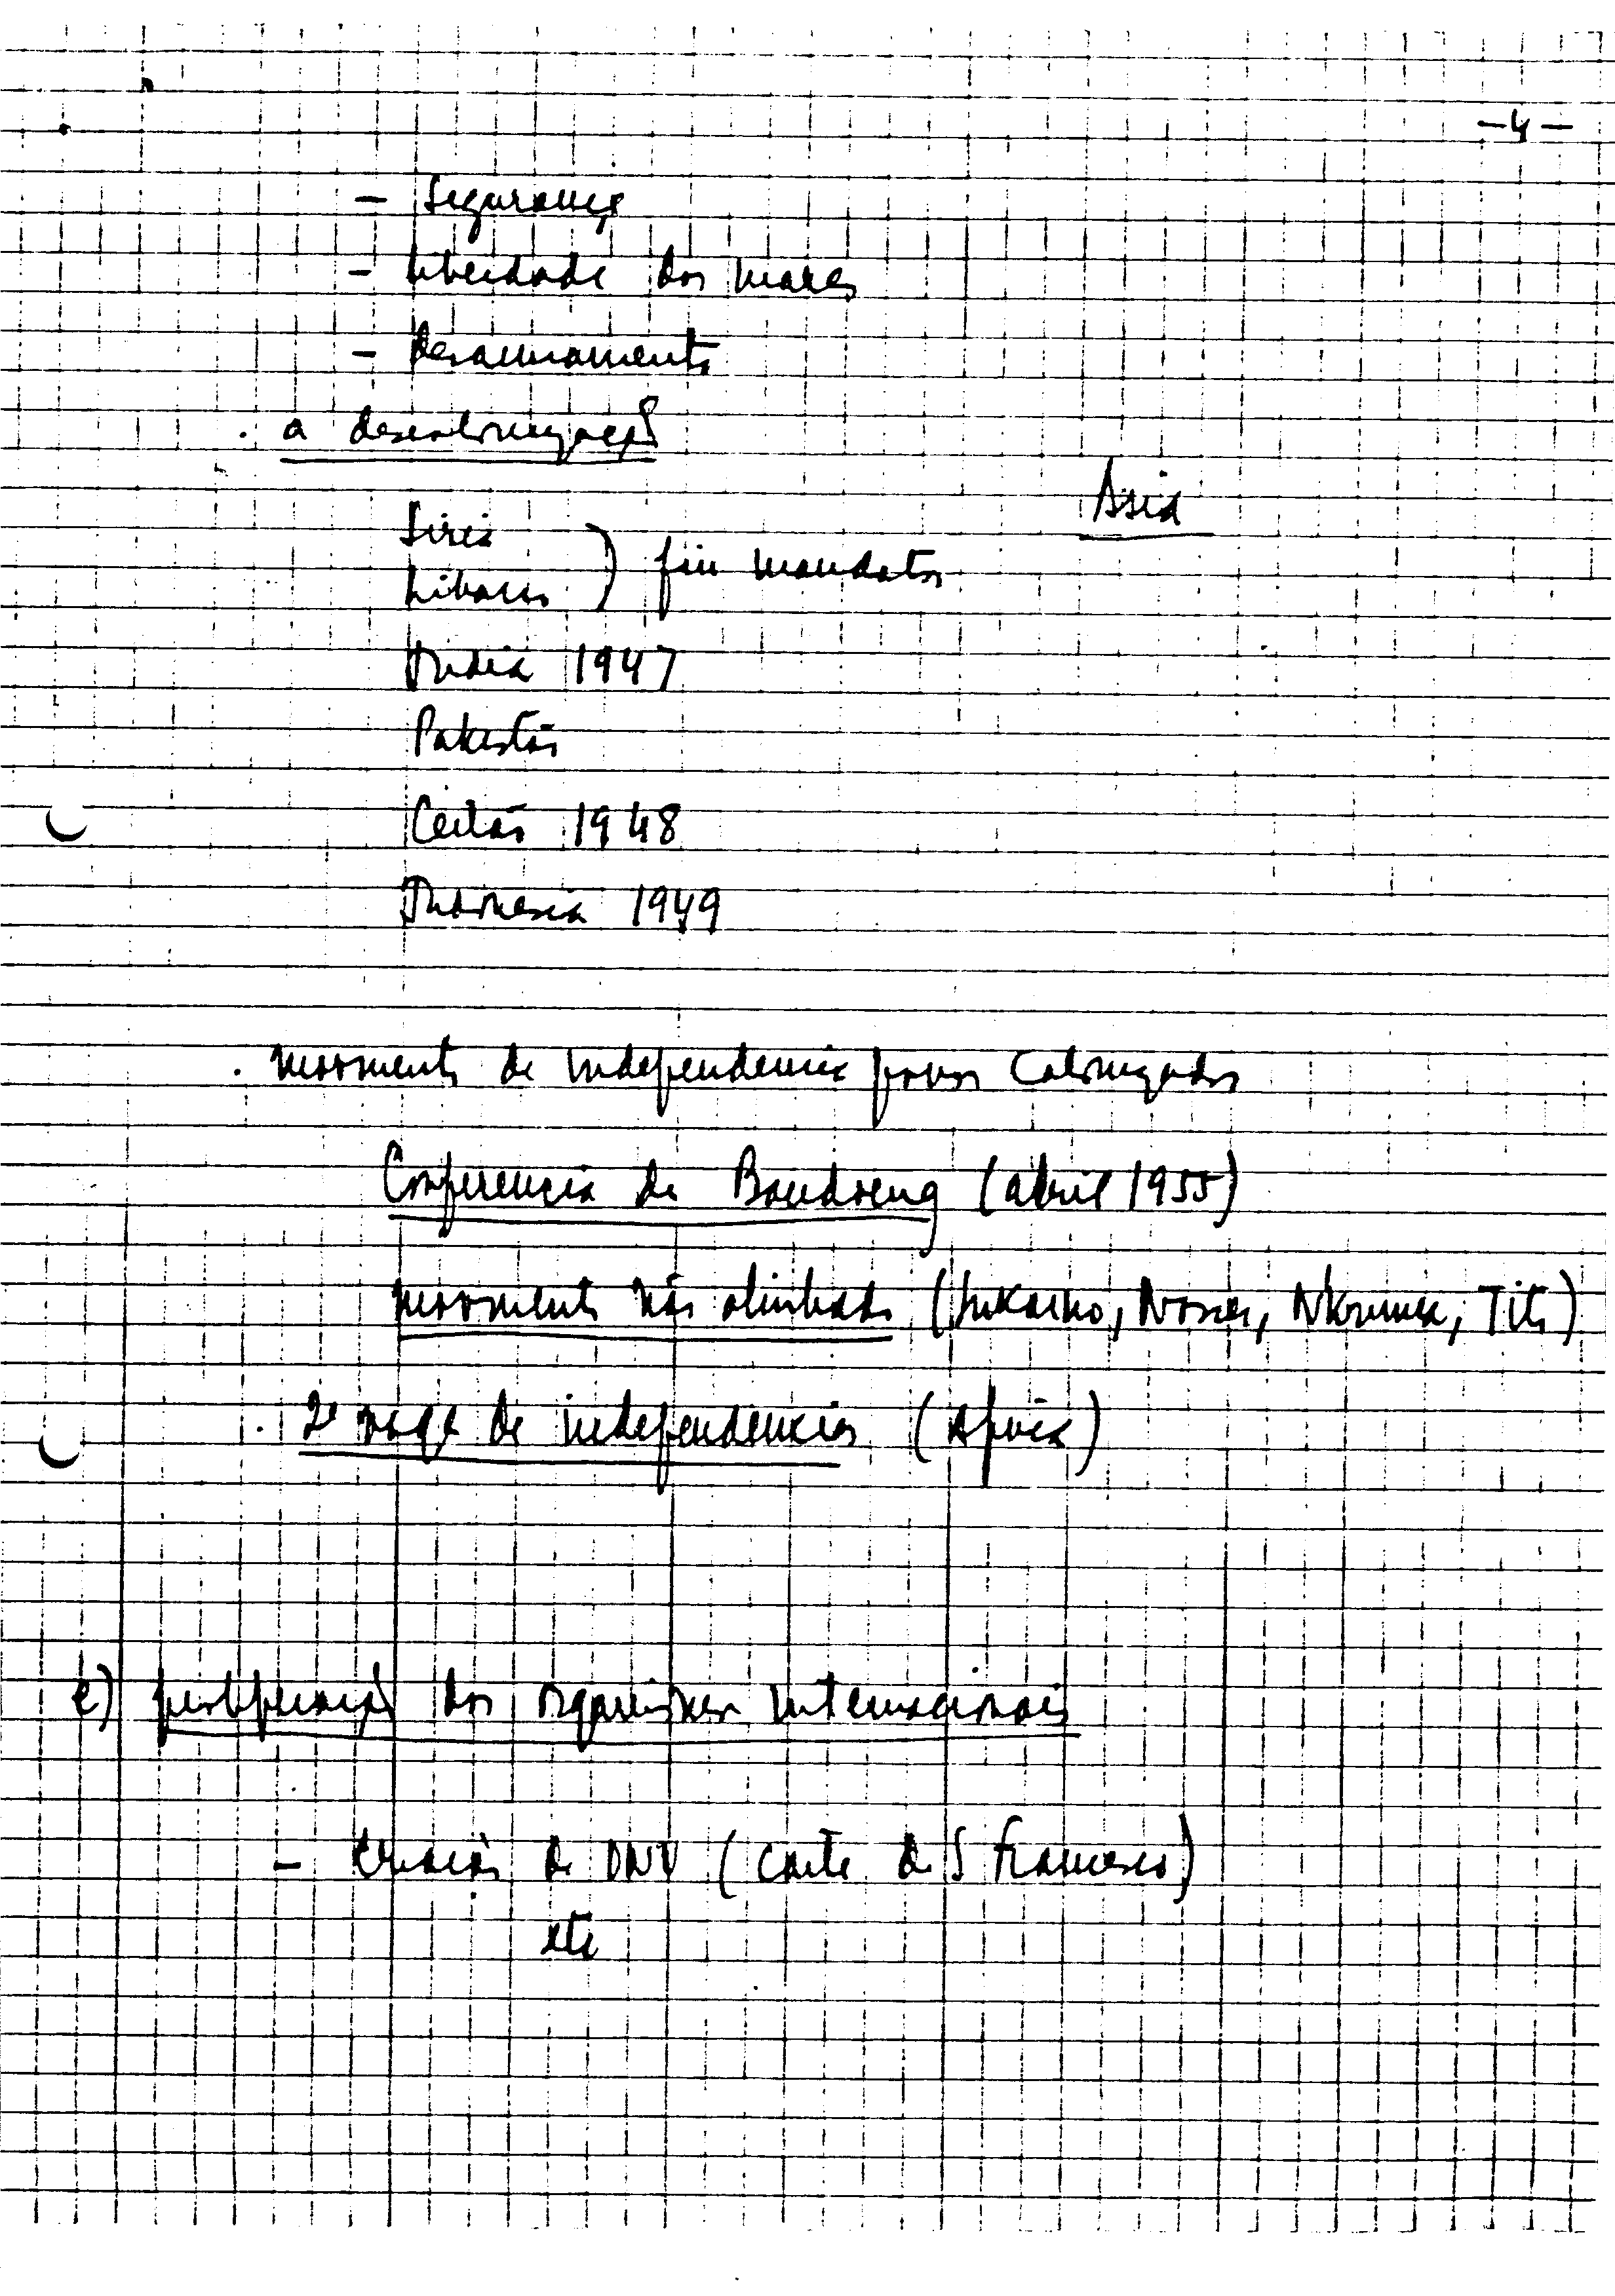 -4-
- Segurança
- liberdade dos mares
- Desarmamento
. a descolonização
Asia
Siria
Libano ) fim mandatos
India 1947
Pakistão
Ceilão 1948
Indonesia 1949
. movimento de independencia povos colonizados
Conferencia de Bandoeng (abril 1955)
movimento não alinhado (Sukarno, Nasser, Nkruma, Tito)
. 2ª vaga de independencias (Africa)
e) proliferação dos organismos internacionais
- criação da ONU (carta de S Francisco)
etc